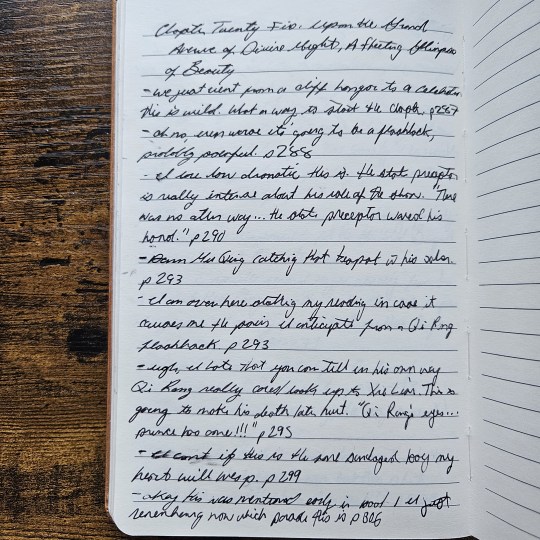 Chapter Twenty Five. Upon the Grand
Avenue of Divine Might, A Fleeting Glimpse
of Beauty
- we just went from a cliff hanger to a celebration
this is wild. What a way to start the chapter. p287
- oh no, even worse it's going to be a flashback,
probably painful. p288
- I love how dramatic this is. the state preceptor
is really intense about his role of the show. "There
was no other way... the state preceptor waved his
hand." p290
- Damn Mu Qing catching that teapot w his saber.
p293
- I am over here stalling my reading in case it
causes me the pain I anticipate from a Qi Rong
flashback p293
- ugh, I hate that you can tell in his own way
Qi Rong really cared/looks up to Xie Lian. This is
going to make his death later hurt. "Qi Rong's eyes...
prince has come!!!" p295
- I can't if this is the same bandaged boy my
heart will weep. p299
- okay this was mentioned early in book 1 I just
remembering now which parade this is p306